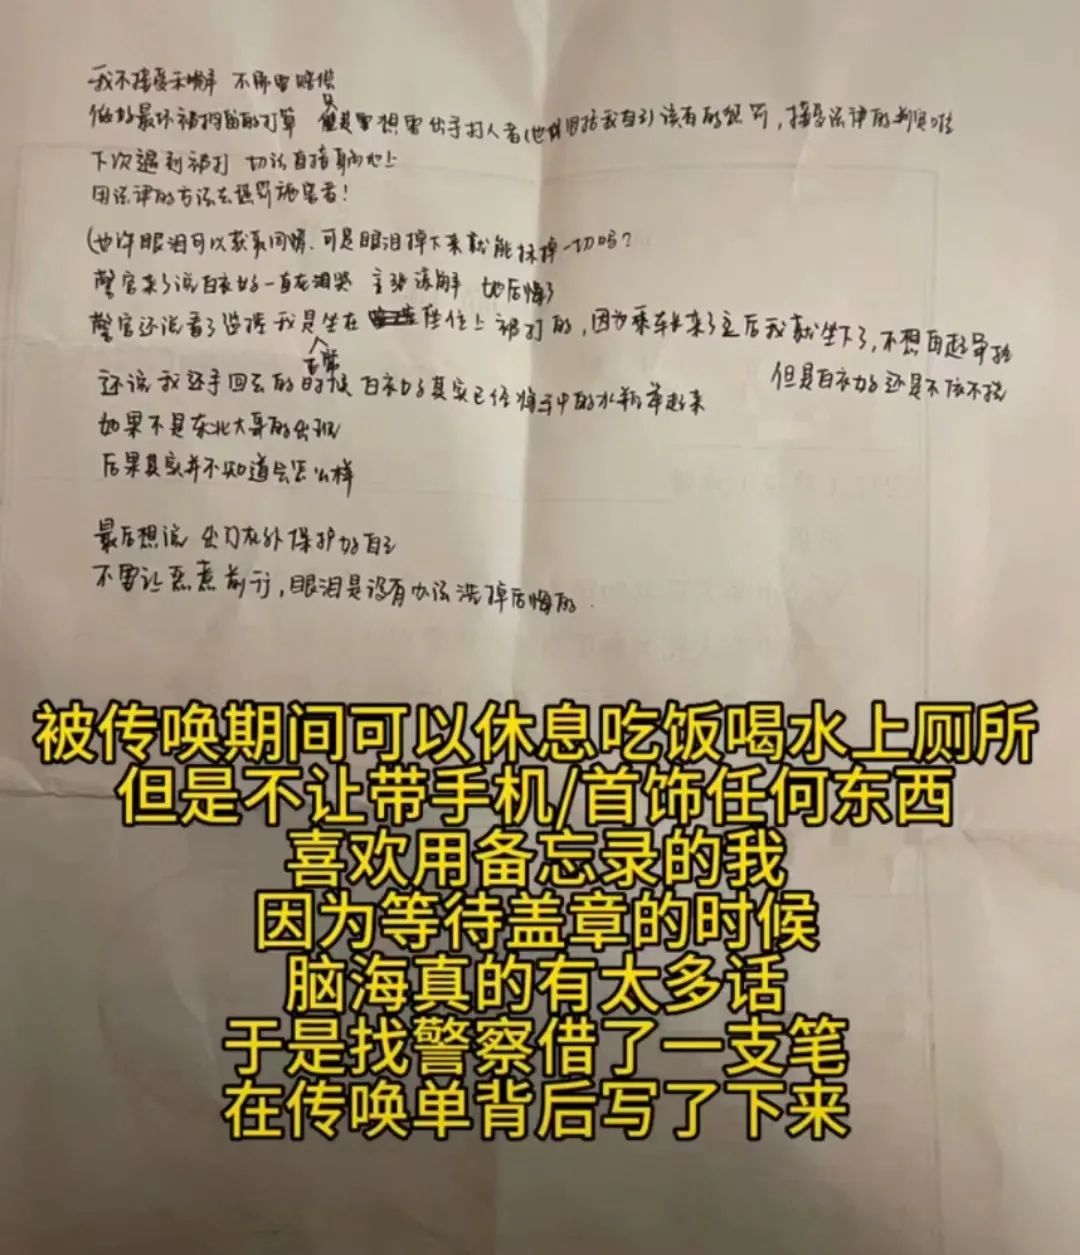 我不接受和解 不需要赔偿
做好最坏被拘留的打算 只是要想要出手打人者(也包括我自己)该有的惩罚,接受法律的判责
下次遇到被打 切记直接躺地上
用法律的方法去惩罚施害者!
(也许眼泪可以获取同情.可是眼泪掉下来就能抹掉一切吗?
警官来了说白衣女一直在泪哭 主张谅解 她后悔了
警官还说看了监控 我是坐在座位上被打的,因为乘车长来了之后我就坐下了,不想再起争执
但是白衣女还是不依不挠
还说我还手回去的时候 白衣女其实已经将手中的水瓶举起来
如果不是东北大哥的出现
后果其实并不知道会怎么样
最后想说 出门在外保护好自己
不要让恶意前行,眼泪是没有办法洗掉后悔的.
被传唤期间可以休息吃饭喝水上厕所
但是不让带手机/首饰任何东西
喜欢用备忘录的我
因为等待盖章的时候
脑海真的有太多话
于是找警察借了一支笔
在传唤单背后写了下来